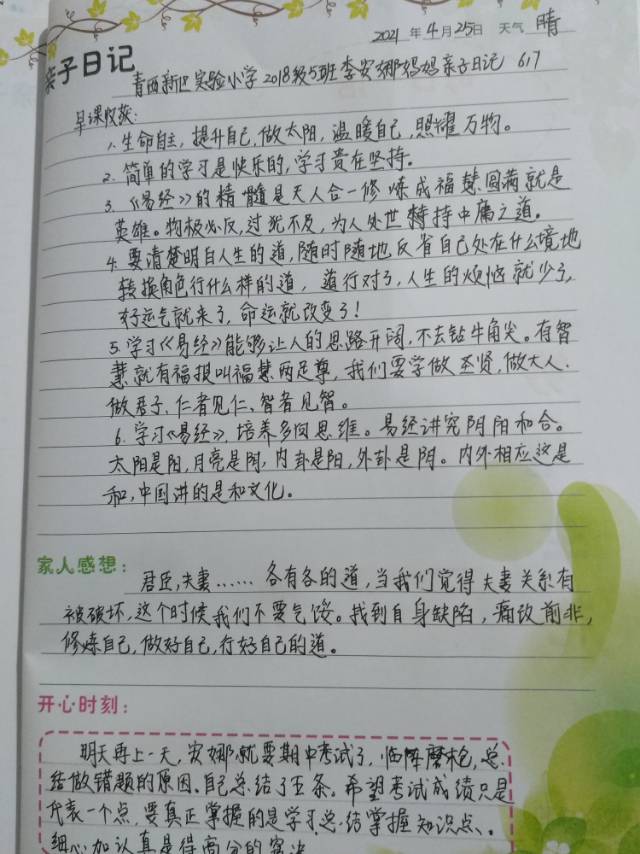 2021 年 4 月 25 日 天气 晴
亲子日记
青西新区实验小学2018级5班李安娜妈妈亲子日记 617
早课收获:
1. 生命自主,提升自己,做太阳,温暖自己,照耀万物。
2. 简单的学习是快乐的,学习贵在坚持。
3. 《易经》的精髓是天人合一修炼成福慧圆满就是
英雄。物极必反,过犹不及,为人处世特持中庸之道。
4. 要清楚明白人生的道,随时随地反省自己处在什么境地
转换角色行什么样的道,道行对了,人生的烦恼就少了,
好运气就来了,命运就改变了!
5. 学习《易经》能够让人的思路开阔,不去钻牛角尖。有智
慧就有福报叫福慧两足尊,我们要学做圣贤,做大人.
做君子,仁者见仁、智者见智。
6. 学习《易经》,培养多向思维。易经讲究阴阳和合。
太阳是阳,月亮是阴,内卦是阳,外卦是阴。内外相应这是
和,中国讲的是和文化。
家人感想:
君臣,夫妻……各有各的道,当我们觉得夫妻关系有
被破坏,这个时候我们不要气馁。找到自身缺陷,痛改前非,
修炼自己,做好自己,行好自己的道。
开心时刻:
明天再上一天,安娜就要期中考试了,临阵磨枪,总
结做错题的原因,自己总结了五条,希望考试成绩只是
代表一个点,要真正掌握的是学习,总结掌握知识点、。
细心加认真是得高分的